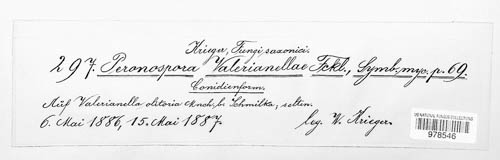 Krieger, Fungi saxonici.
297. Peronospora Valerianellae Fckl., Symb. myc. p. 69.
Conidienform.
Auf Valerianella olitoria Mnch. b. Schmilka, selten.
6. Mai 1886, 15. Mai 1887. leg. W. Krieger.
US NATIONAL FUNGUS COLLECTIONS
978546